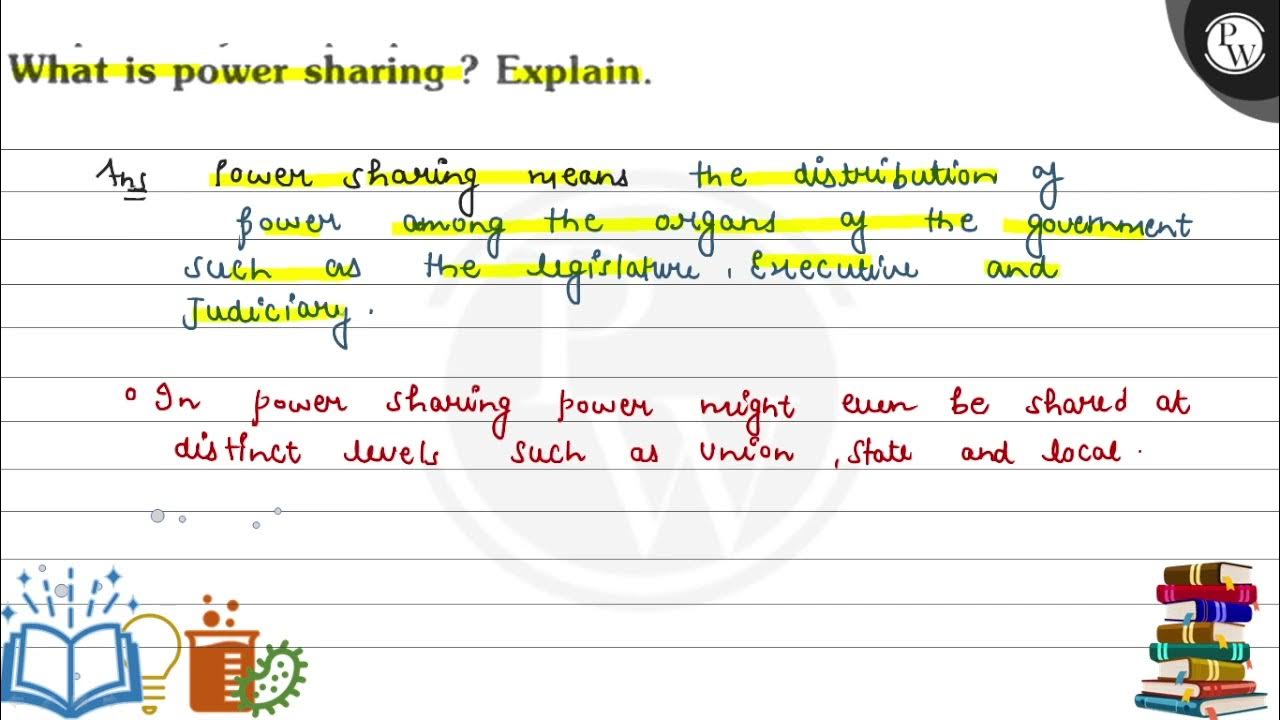 P
W
What is power sharing ? Explain.
Ans Power sharing means the distribution of
power among the organs of the government
such as the legislature, Executive and
Judiciary.
In power sharing power might even be shared at
distinct levels such as union, state and local.
P
W